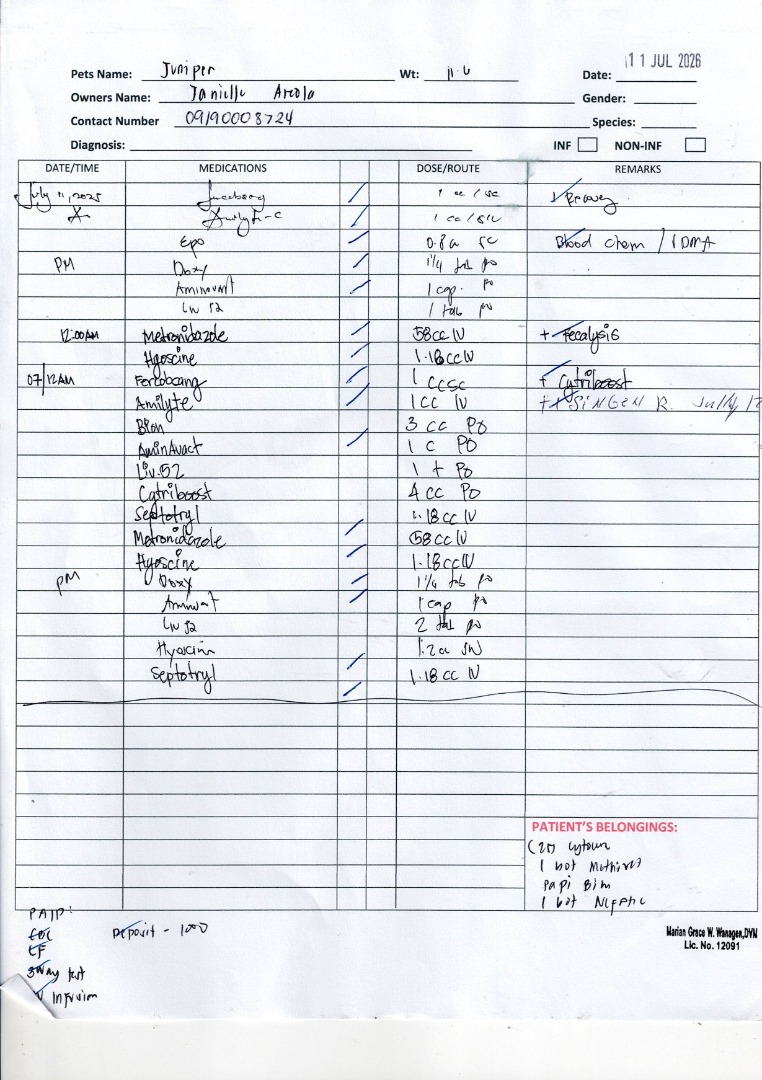 11 JUL 2026
Pets Name: Juniper Wt: 11.6 Date:
Owners Name: Danielle Areola Gender:
Contact Number 09190008724 Species:
Diagnosis: INF NON-INF
DATE/TIME MEDICATIONS DOSE/ROUTE REMARKS
July 11, 2025 1 cc / sc
1 cc / SIV
Epo 0.8cc sc Blood chem / IDMA
PM Doxy 1 1/4 tab po
Aminavast 1 cap. po
Liv 52 1 tab po
12:00AM Metronidazole 58cc IV + Fecalysis
Hyoscine 1.18cc IV
07/12AM Fercobsang 1 cc sc + Catriboost
Amilyte 1cc IV
Bion 3 cc PO
AminAvact 1 c PO
Liv.52 1 t PO
Catriboost 4 cc PO
Septotryl 1.18cc IV
Metronidazole 58cc IV
Hyoscine 1.18cc IV
PM Doxy 1 1/4 tab po
1 cap po
Liv 52 2 tab po
Hyoscin
Septotryl 1.18 cc IV
PATIENT'S BELONGINGS:
1 bot
Papi
1 bot
PAID:
CBC Deposit - 1000
3way test
IV Infusion
Marian Grace W. Wanagen, DVM
Lic. No. 12091